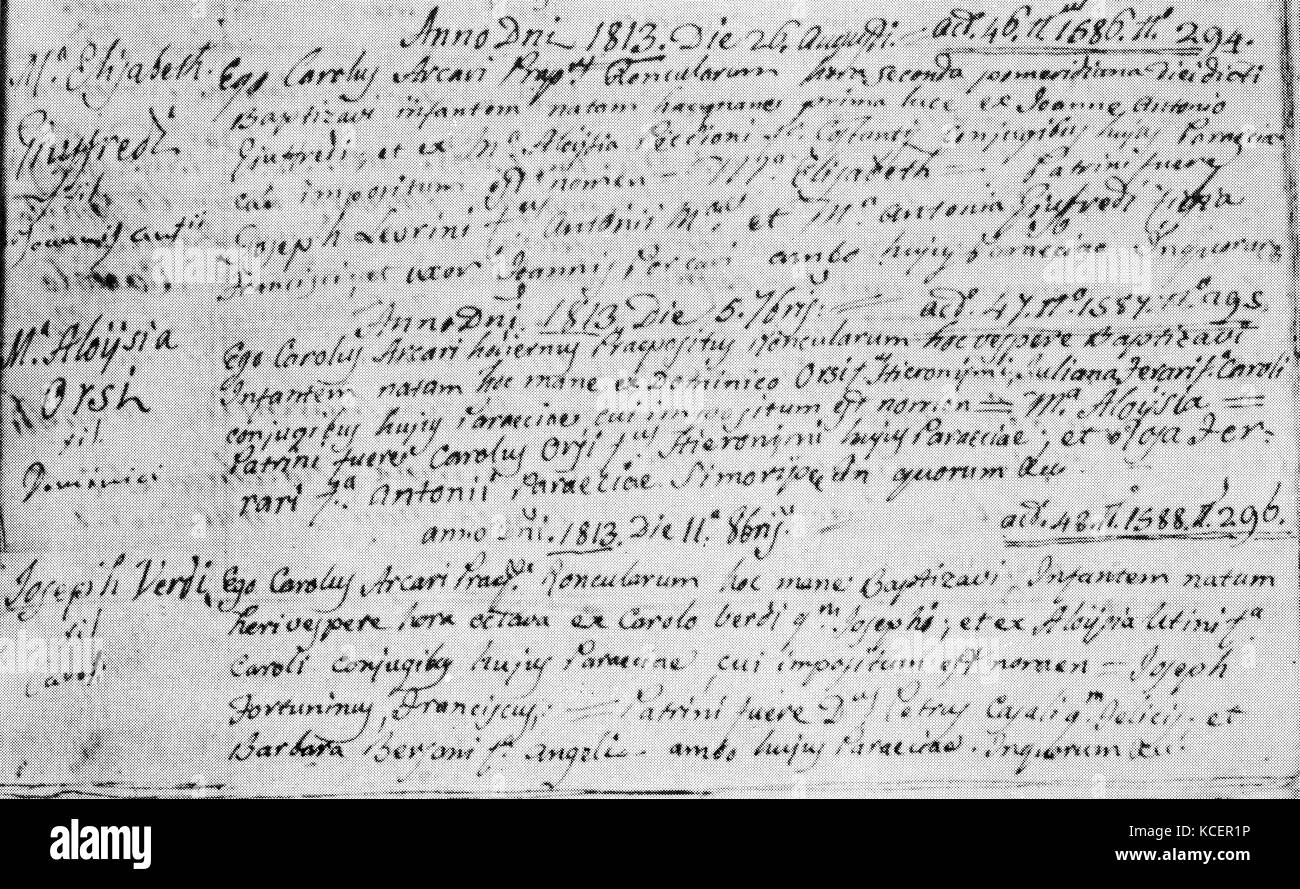 Anno Dni 1813. Die 26. Augusti. — act. 46. n. 1586. n. 294.
Ma. Elisabeth Giuffredi fil. Joannis Antii
Ego Carolus Arcari Praep. Roncularum hora seconda pomeridiana diei dicti
Baptizavi infantem natam hac prima luce ex Joanne Antonio
Giuffredi, et ex Ma. Aloysia Peccioni Conjugibus hujus Paraeciae
cui impositum est nomen — Ma. Elisabeth — Patrini fuere
Joseph Levrini fus Antonii et Ma. Antonia Giuffredi
Francisci, et uxor Joannis Porcari ambo hujus Paraeciae. In quorum
Anno Dni. 1813. Die 5. 7bris. — act. 47. n. 1587. n. 295.
Ma. Aloysia Orsi fil. Dominici
Ego Carolus Arcari hojernus Praepositus Roncularum hoc vespere Baptizavi
Infantem natam hoc mane ex Dominico Orsi f. Hieronimi, Juliana Ferari f. Caroli
conjugibus hujus Paraeciae, cui impositum est nomen = Ma. Aloysia =
Patrini fuere Carolus Orsi fus Hieronimi hujus Paraeciae; et Rosa Fer-
rari fa. Antonii Paraeciae Simoripe, In quorum &
anno Dni. 1813. Die 11. 8bris. — act. 48. n. 1588. n. 296.
Joseph Verdi fil. Carol.
Ego Carolus Arcari Praep. Roncularum hoc mane Baptizavi Infantem natum
heri vespere hora octava ex Carolo Verdi qm Josephi, et ex Aloysia Utini fa
Caroli conjugibus hujus Paraeciae, cui impositum est nomen — Joseph
Fortuninus, Franciscus; = Patrini fuere Dnus Petrus Casali qm Felicis, et
Barbara Bersani fa. Angeli — ambo hujus Paraeciae. In quorum &c.
alamy
Image ID: KCER1P
www.alamy.com